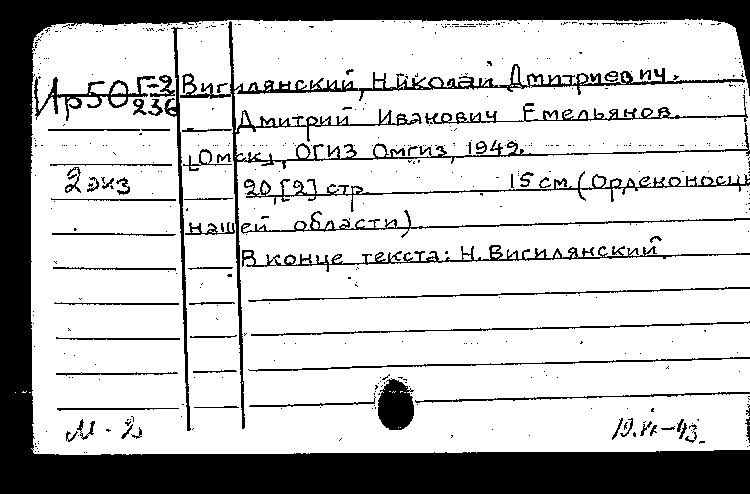 Ир50 Г-2
236
Вигилянский, Николай Дмитриевич.
Дмитрий Иванович Емельянов.
[Омск], ОГИЗ Омгиз, 1949.
2 экз
20,[2] стр. 15 см. (Орденоносцы
нашей области)
В конце текста: Н. Вигилянский.
М-2